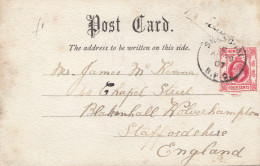 Post Card.
The address to be written on this side.
Mrs. James McKenna
Chapel Street
Blakenhall Wolverhampton
Staffordshire
England
FOUR CENTS